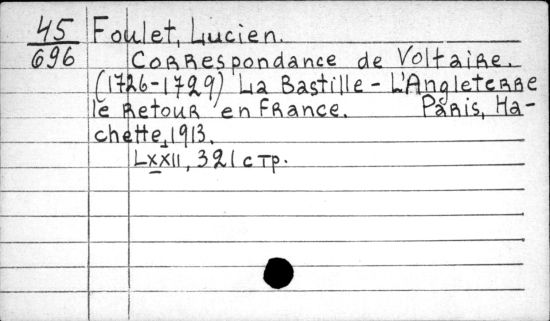 45 Foulet, Lucien.
696 Correspondance de Voltaire.
(1726-1729) La Bastille - L'Angleterre
le Retour en France. Paris, Ha-
chette, 1913.
LXXII, 321 стр.